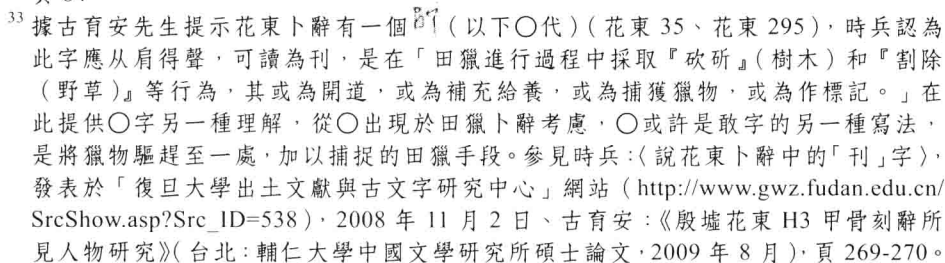 33 據古育安先生提示花東卜辭有一個（以下〇代）（花東 35、花東 295），時兵認為
此字應从肩得聲，可讀為刊，是在「田獵進行過程中採取『砍斫』（樹木）和『割除
（野草）』等行為，其或為開道，或為補充給養，或為捕獲獵物，或為作標記。」在
此提供〇字另一種理解，從〇出現於田獵卜辭考慮，〇或許是敢字的另一種寫法，
是將獵物驅趕至一處，加以捕捉的田獵手段。參見時兵：〈說花東卜辭中的「刊」字〉，
發表於「復旦大學出土文獻與古文字研究中心」網站（http://www.gwz.fudan.edu.cn/
SrcShow.asp?Src_ID=538），2008 年 11 月 2 日、古育安：《殷墟花東 H3 甲骨刻辭所
見人物研究》（台北：輔仁大學中國文學研究所碩士論文，2009 年 8 月），頁 269-270。